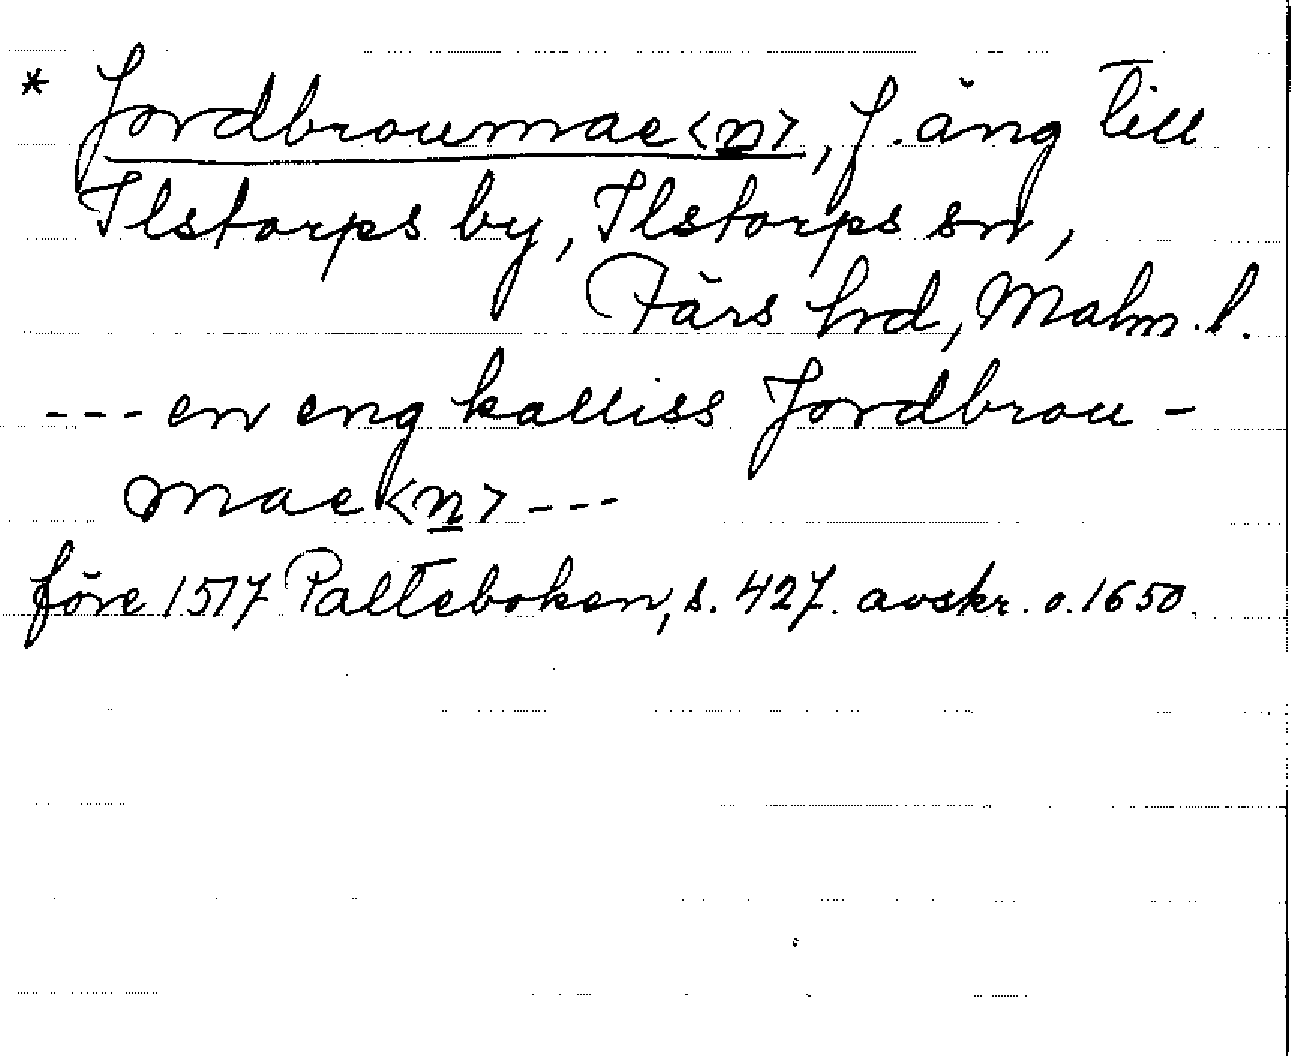 * Jordbroumae<n>, f. äng till
Ilstorps by, Ilstorps sn,
Färs hrd, Malm. l.
--- en eng kalliss Jordbrou-
mae<n> ---
före 1517 Palteboken, s. 427. avskr. o. 1650.